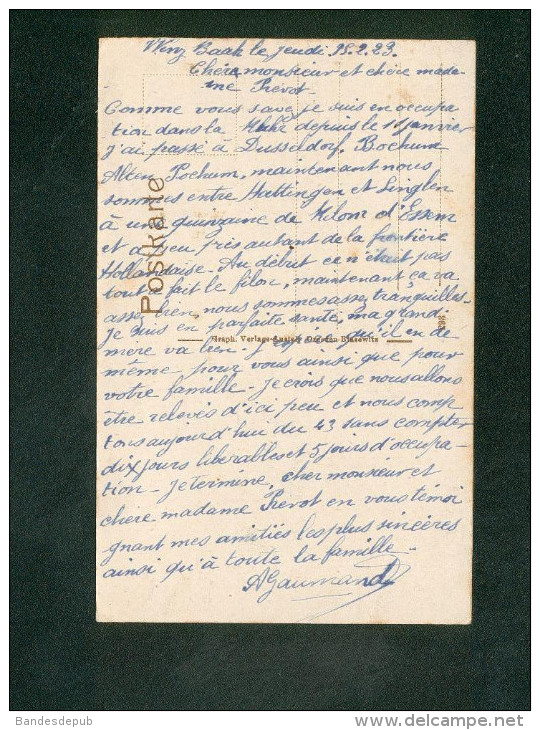 Winz Baak le jeudi 15.2.23.
Chère monsieur et chère mada-
me Prévot
Comme vous save, je suis en occupa
tion dans la Ruhr depuis le 11 janvier
j'ai passé à Dusseldorf, Bochum
Alten Bochum, maintenant nous
sommes entre Hattingen et Linglen
à une quinzaine de Kilom d'Essem
et a peu près autant de la frontière
Hollandaise. Au début ce n'était pas
tout à fait le filon, maintenant ça va
assez bien, nous sommes assez tranquilles.
Je suis en parfaite santé, ma grand
mère va bien. J'espère qu'il en de
même, pour vous ainsi que pour
votre famille. Je crois que nous allons
être relevés d'ici peu et nous comp
tons aujourd'hui du 43 sans compter
dix jours libérables et 5 jours d'occupa-
tion. Je termine, cher monsieur et
chère madame Prévot en vous témoi
gnant mes amitiés les plus sincères
ainsi qu'à toute la famille.
AGaumand
Postkarte
Graph. Verlags-Anstalt Dresden-Blasewitz
Bandesdepub
www.delcampe.net